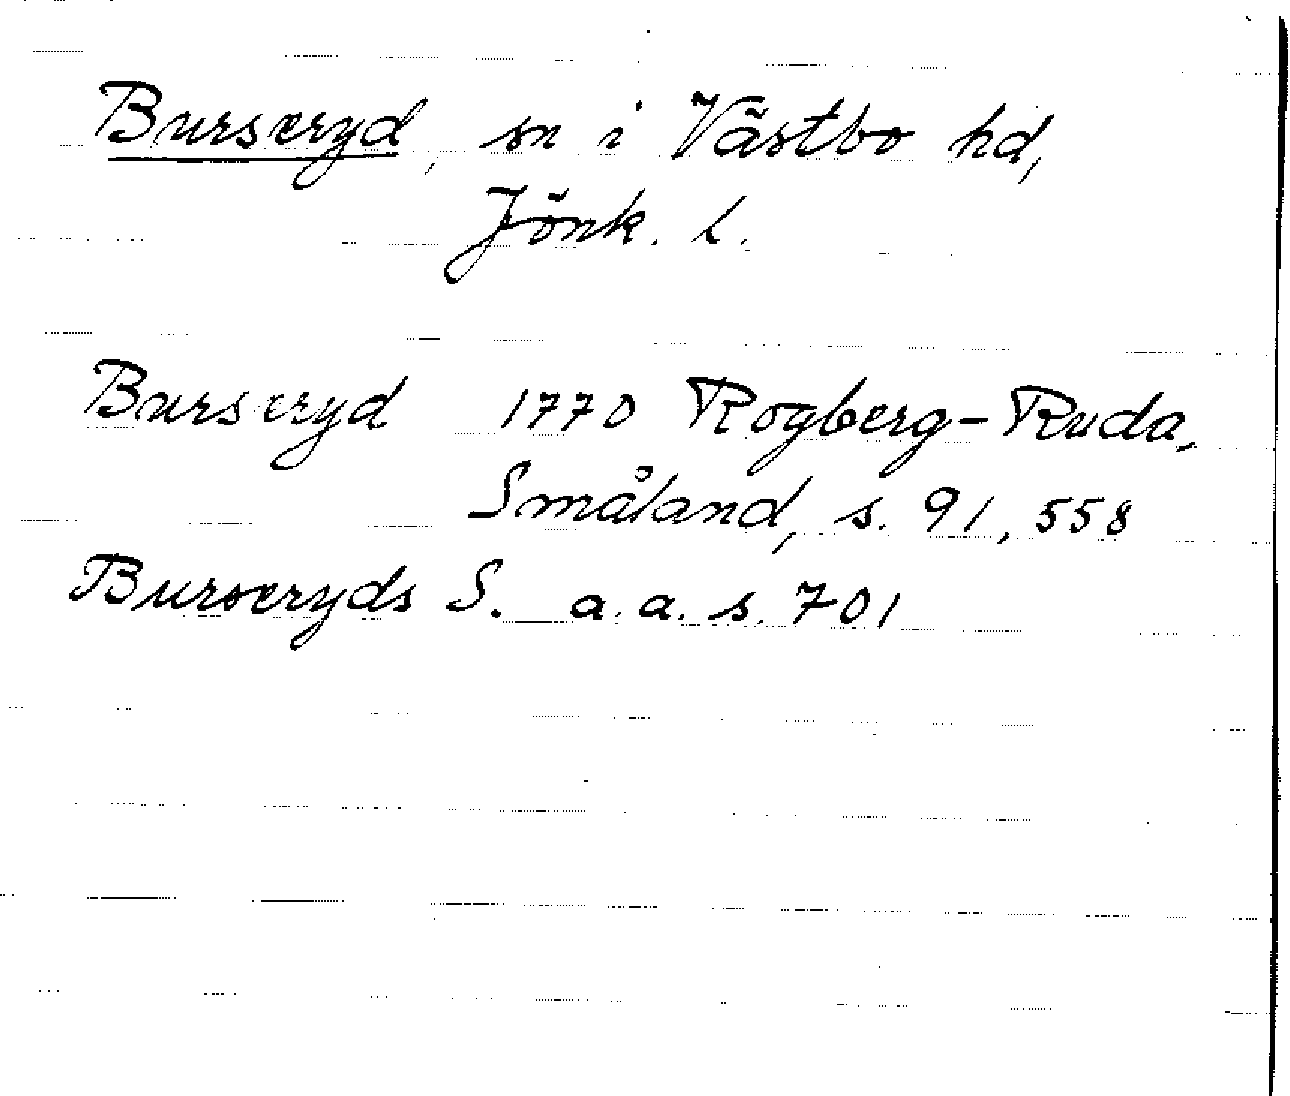 Burseryd, sn i Västbo hd,
Jönk. l.
Burseryd 1770 Rogberg-Ruda,
Småland, s. 91, 558
Burseryds S. a.a. s. 701